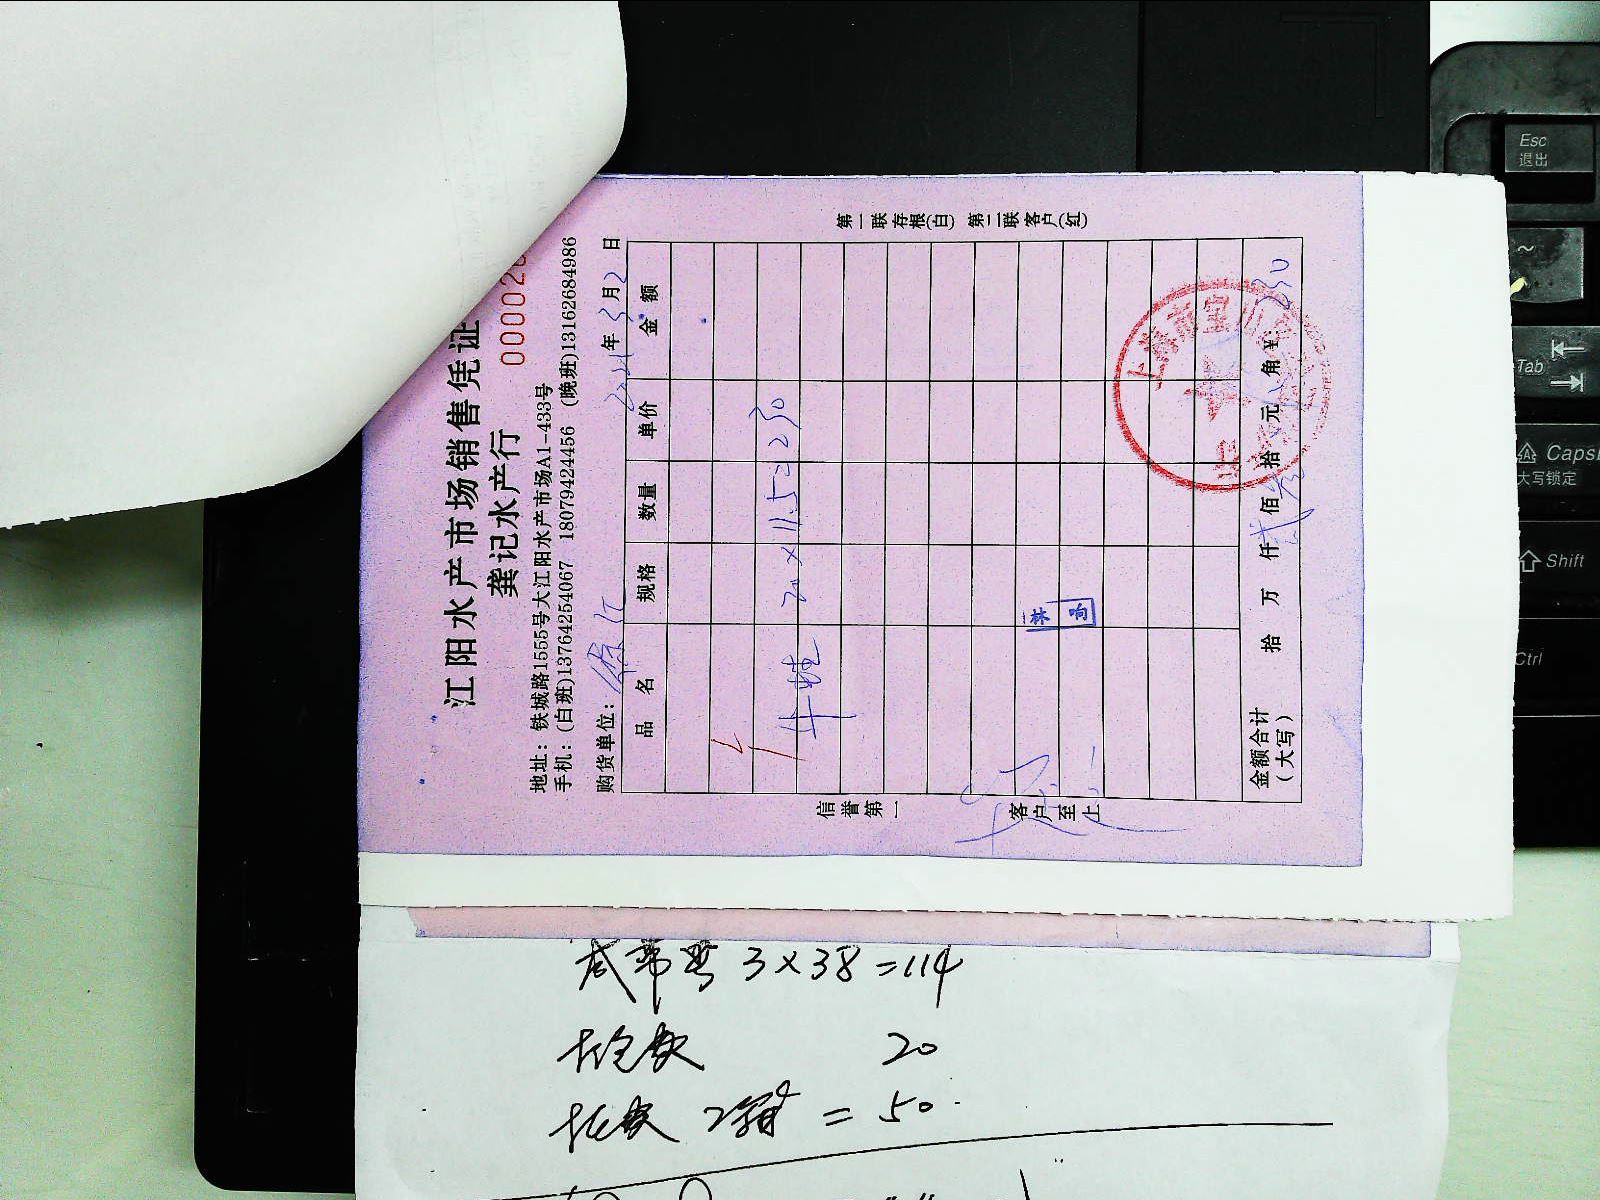 江阳水产市场销售凭证
龚记水产行
00002
地址：铁城路1555号大江阳水产市场A1-433号
手机：(白班)13764254067 18079424456 (晚班)13162684986
购货单位： 年3月2日
品名 规格 数量 单价 金额
牛蛙 20×11.5=230
金额合计（大写） 拾 万 仟 贰佰 叁拾 元 角 ¥:230
信誉第一 客户至上
第一联存根(白) 第二联客户(红)
上海市
3×38=114
20
2箱=50
Esc
退出
~
Tab
Caps
大写锁定
Shift
Ctrl